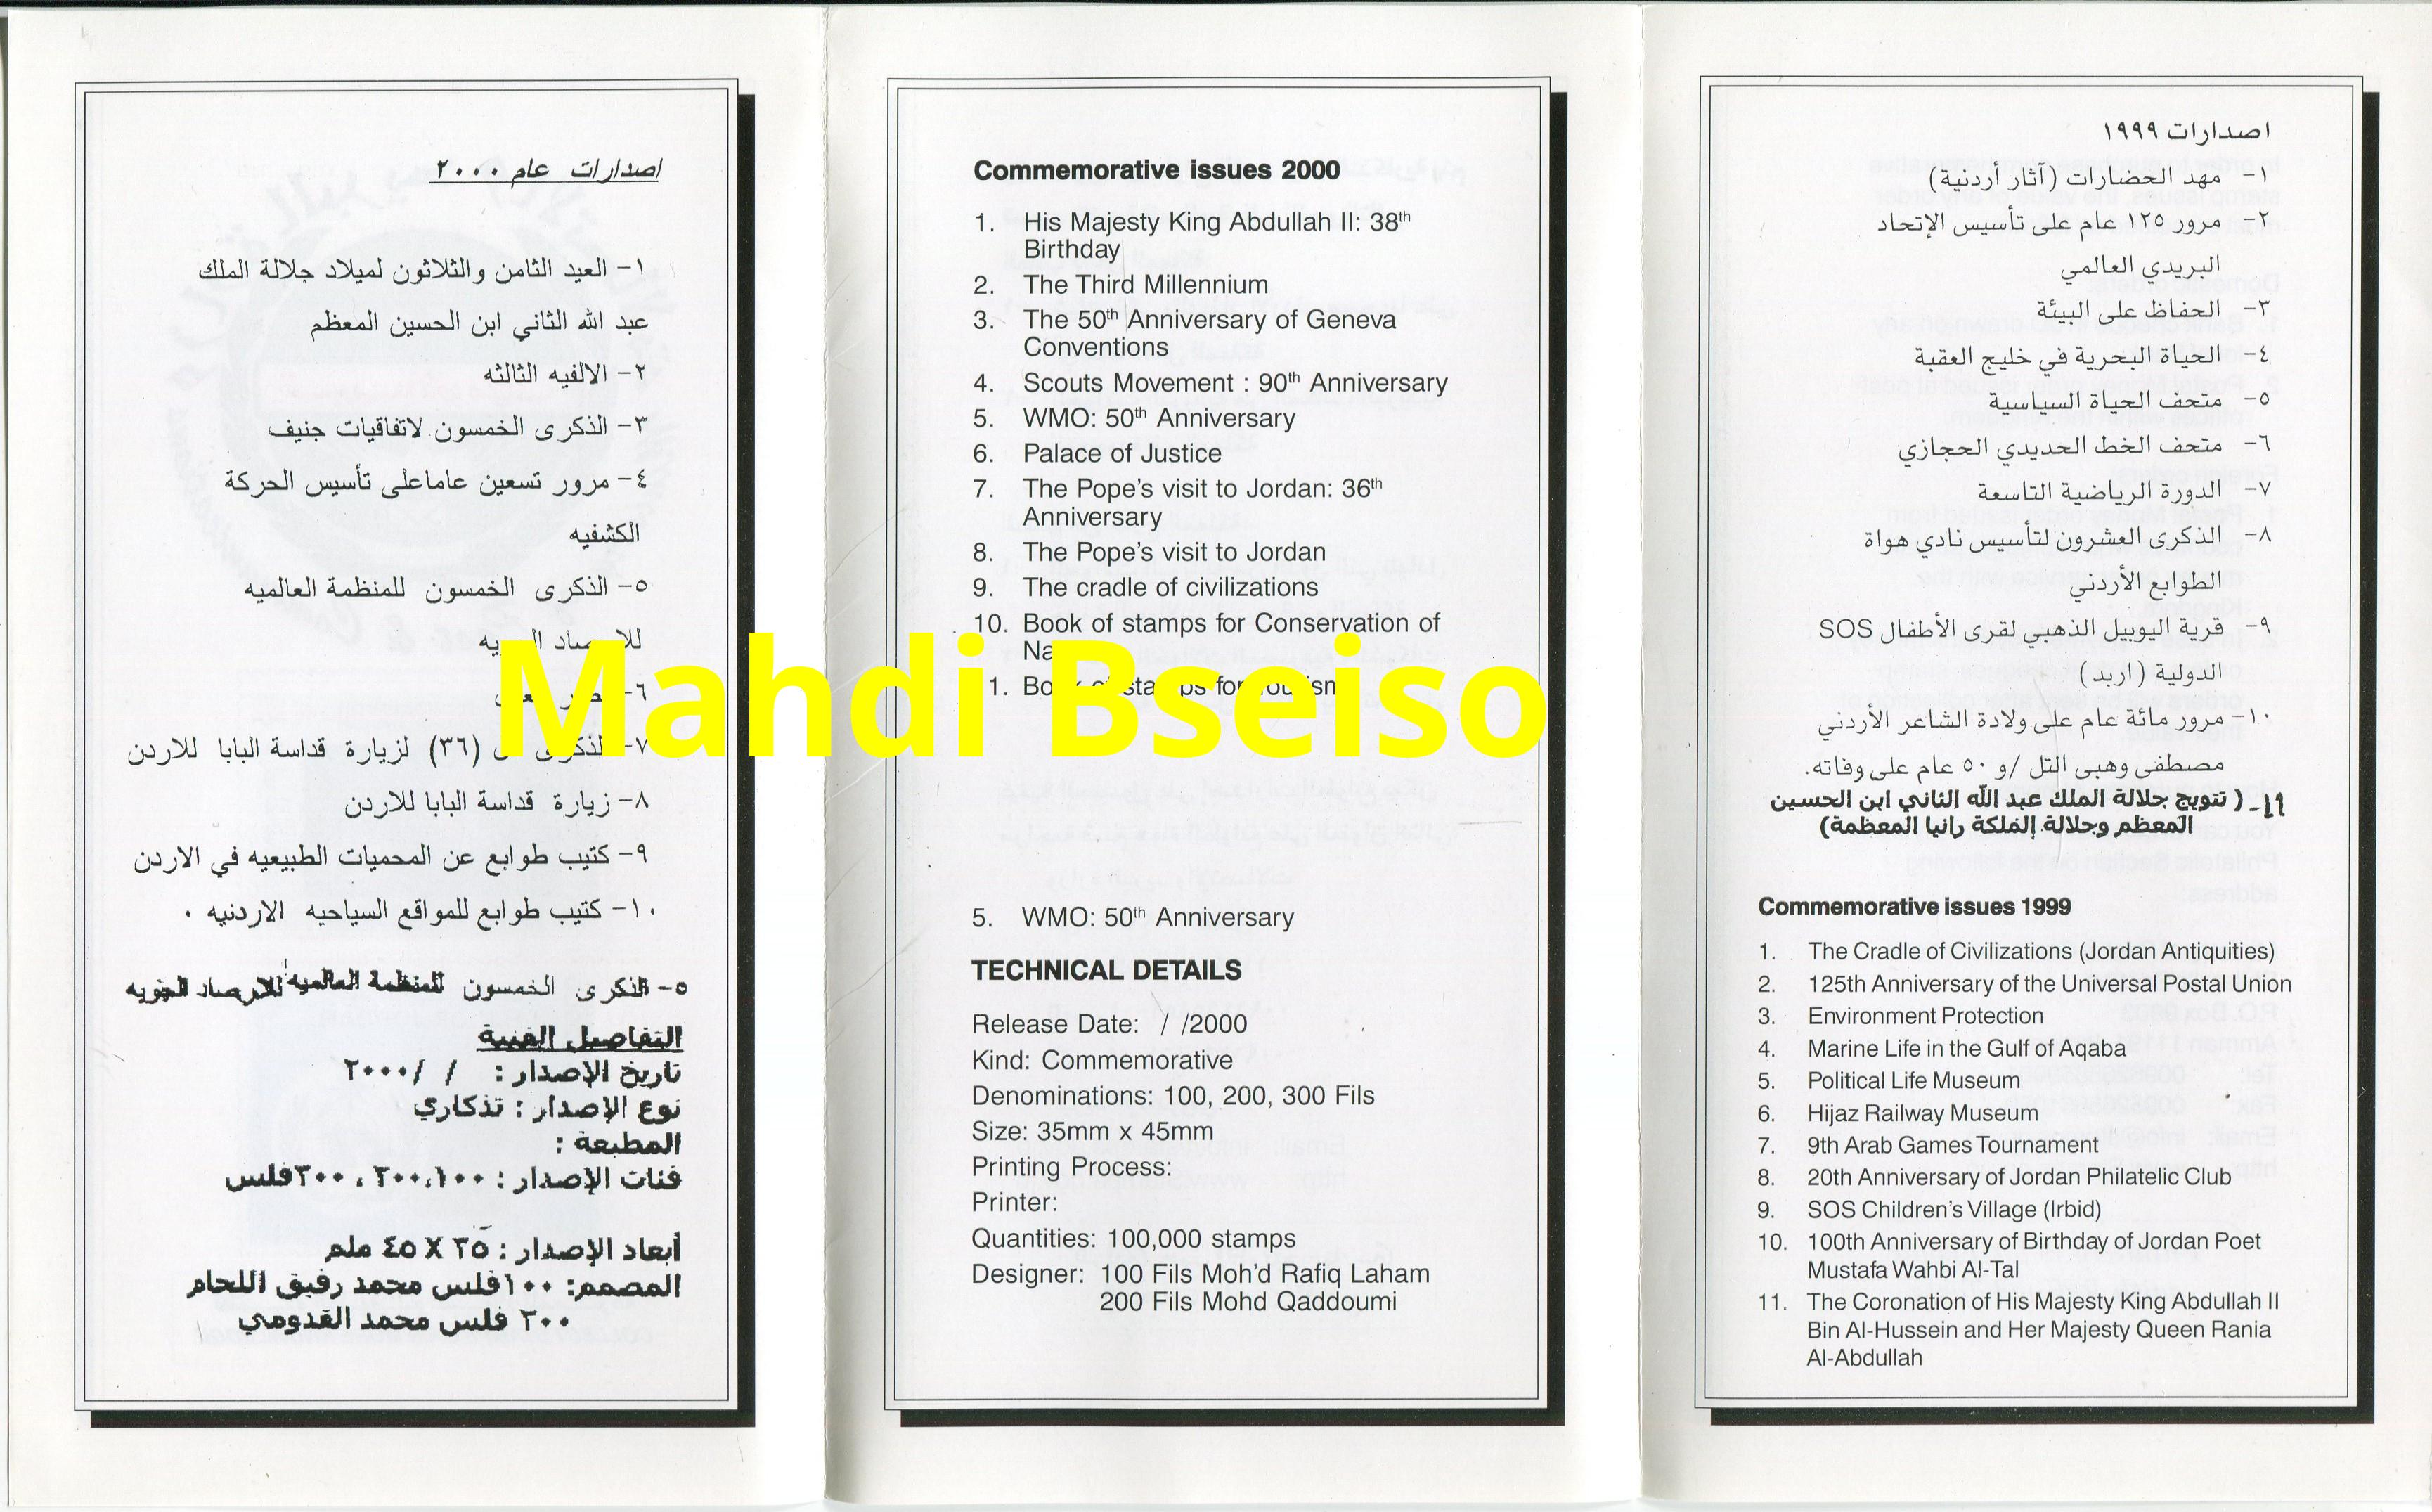 اصدارات عام ٢٠٠٠
١- العيد الثامن والثلاثون لميلاد جلالة الملك
عبد الله الثاني ابن الحسين المعظم
٢- الالفيه الثالثه
٣- الذكرى الخمسون لاتفاقيات جنيف
٤- مرور تسعين عاماعلى تأسيس الحركة
الكشفيه
٥- الذكرى الخمسون للمنظمة العالميه
٦-
٧- (٣٦) لزيارة قداسة البابا للاردن
٨- زيارة قداسة البابا للاردن
٩- كتيب طوابع عن المحميات الطبيعيه في الاردن
١٠- كتيب طوابع للمواقع السياحيه الاردنيه ٠
٥- الذكرى الخمسون للمنظمة العالميه للارصاد الجويه
التفاصيل الفنية
تاريخ الإصدار : / /٢٠٠٠
نوع الإصدار : تذكاري
المطبعة :
فئات الإصدار : ٢٠٠،١٠٠ ، ٣٠٠فلس
أبعاد الإصدار : ٣٥ X ٤٥ ملم
المصمم: ١٠٠فلس محمد رفيق اللحام
٢٠٠ فلس محمد القدومي
Commemorative issues 2000
1. His Majesty King Abdullah II: 38th
Birthday
2. The Third Millennium
3. The 50th Anniversary of Geneva
Conventions
4. Scouts Movement : 90th Anniversary
5. WMO: 50th Anniversary
6. Palace of Justice
7. The Pope's visit to Jordan: 36th
Anniversary
8. The Pope's visit to Jordan
9. The cradle of civilizations
10. Book of stamps for Conservation of
Mahdi Bseiso
Book of stamps for Tourism
5. WMO: 50th Anniversary
TECHNICAL DETAILS
Release Date: / /2000
Kind: Commemorative
Denominations: 100, 200, 300 Fils
Size: 35mm x 45mm
Printing Process:
Printer:
Quantities: 100,000 stamps
Designer: 100 Fils Moh'd Rafiq Laham
200 Fils Mohd Qaddoumi
اصدارات ١٩٩٩
١- مهد الحضارات (آثار أردنية)
٢- مرور ١٢٥ عام على تأسيس الإتحاد
البريدي العالمي
٣- الحفاظ على البيئة
٤- الحياة البحرية في خليج العقبة
٥- متحف الحياة السياسية
٦- متحف الخط الحديدي الحجازي
٧- الدورة الرياضية التاسعة
٨- الذكرى العشرون لتأسيس نادي هواة
الطوابع الأردني
٩- قرية اليوبيل الذهبي لقرى الأطفال SOS
الدولية (اربد)
١٠- مرور مائة عام على ولادة الشاعر الأردني
مصطفى وهبى التل /و ٥٠ عام على وفاته.
١١- ( تتويج جلالة الملك عبد الله الثاني ابن الحسين
المعظم وجلالة الملكة رانيا المعظمة)
Commemorative issues 1999
1. The Cradle of Civilizations (Jordan Antiquities)
2. 125th Anniversary of the Universal Postal Union
3. Environment Protection
4. Marine Life in the Gulf of Aqaba
5. Political Life Museum
6. Hijaz Railway Museum
7. 9th Arab Games Tournament
8. 20th Anniversary of Jordan Philatelic Club
9. SOS Children's Village (Irbid)
10. 100th Anniversary of Birthday of Jordan Poet
Mustafa Wahbi Al-Tal
11. The Coronation of His Majesty King Abdullah II
Bin Al-Hussein and Her Majesty Queen Rania
Al-Abdullah